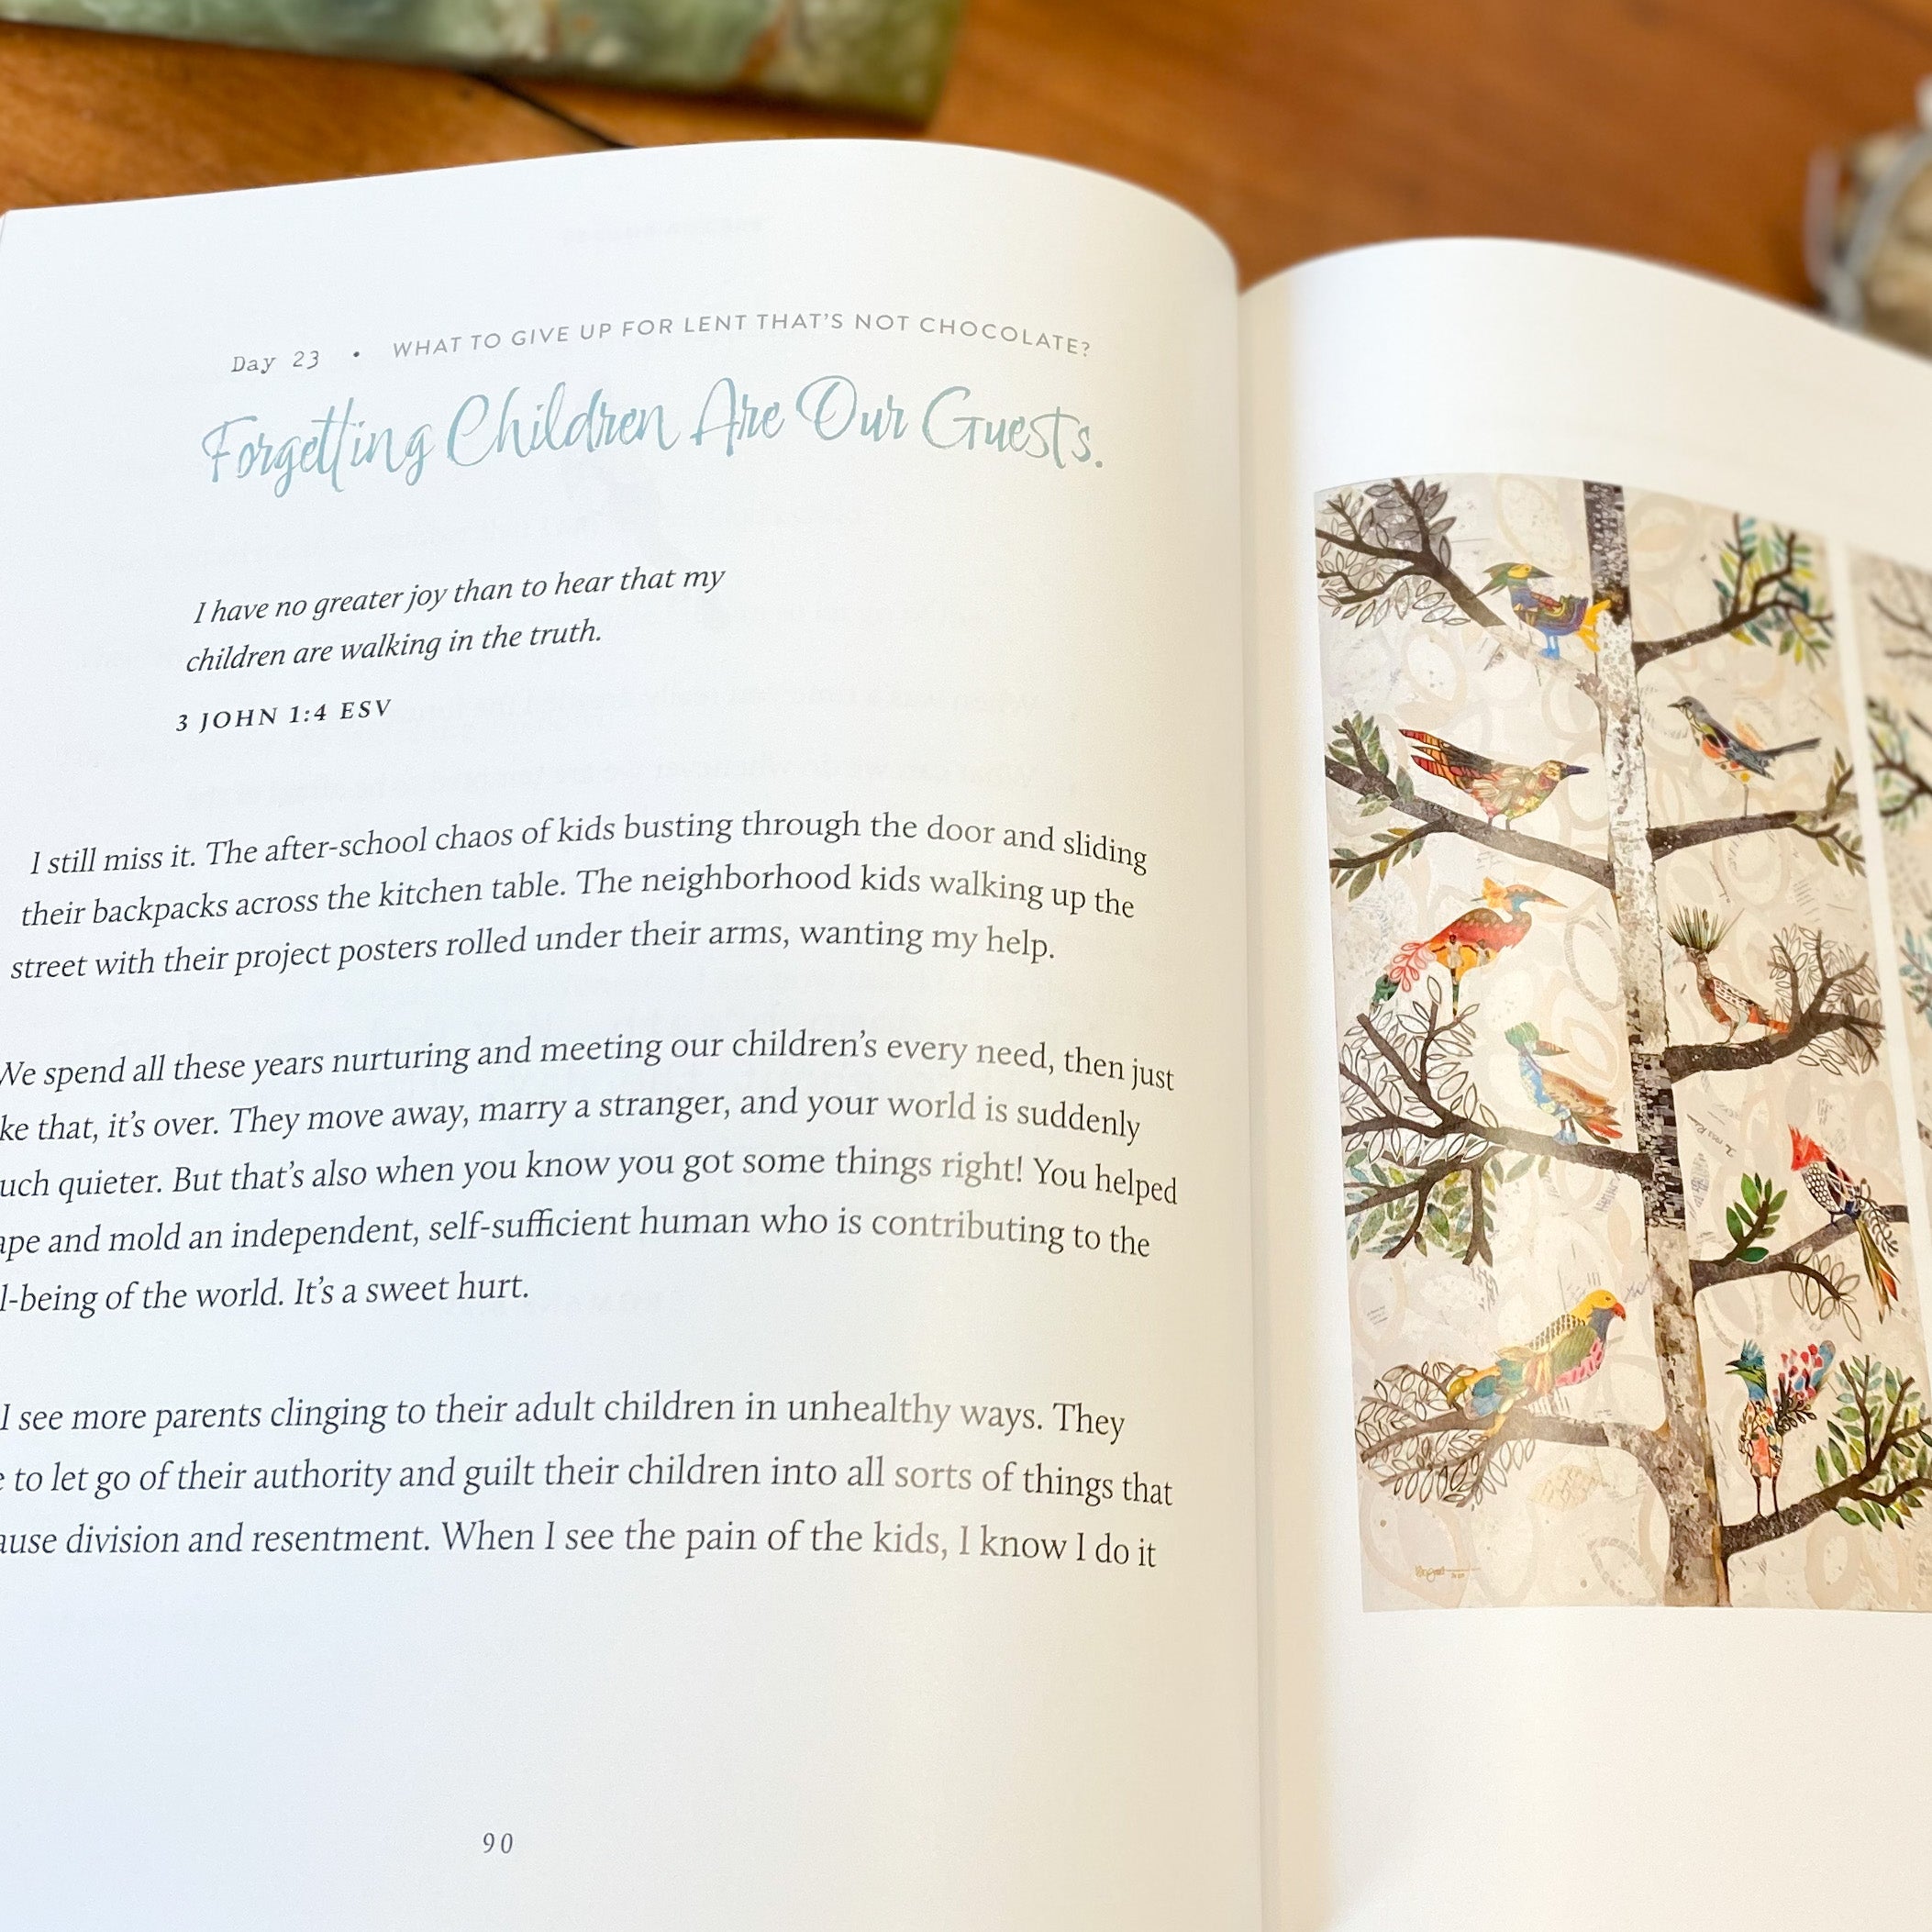 Day 23 • WHAT TO GIVE UP FOR LENT THAT'S NOT CHOCOLATE?
Forgetting Children Are Our Guests.
I have no greater joy than to hear that my
children are walking in the truth.
3 JOHN 1:4 ESV
I still miss it. The after-school chaos of kids busting through the door and sliding
their backpacks across the kitchen table. The neighborhood kids walking up the
street with their project posters rolled under their arms, wanting my help.
We spend all these years nurturing and meeting our children's every need, then just
ke that, it's over. They move away, marry a stranger, and your world is suddenly
uch quieter. But that's also when you know you got some things right! You helped
ape and mold an independent, self-sufficient human who is contributing to the
l-being of the world. It's a sweet hurt.
I see more parents clinging to their adult children in unhealthy ways. They
e to let go of their authority and guilt their children into all sorts of things that
ause division and resentment. When I see the pain of the kids, I know I do it
90